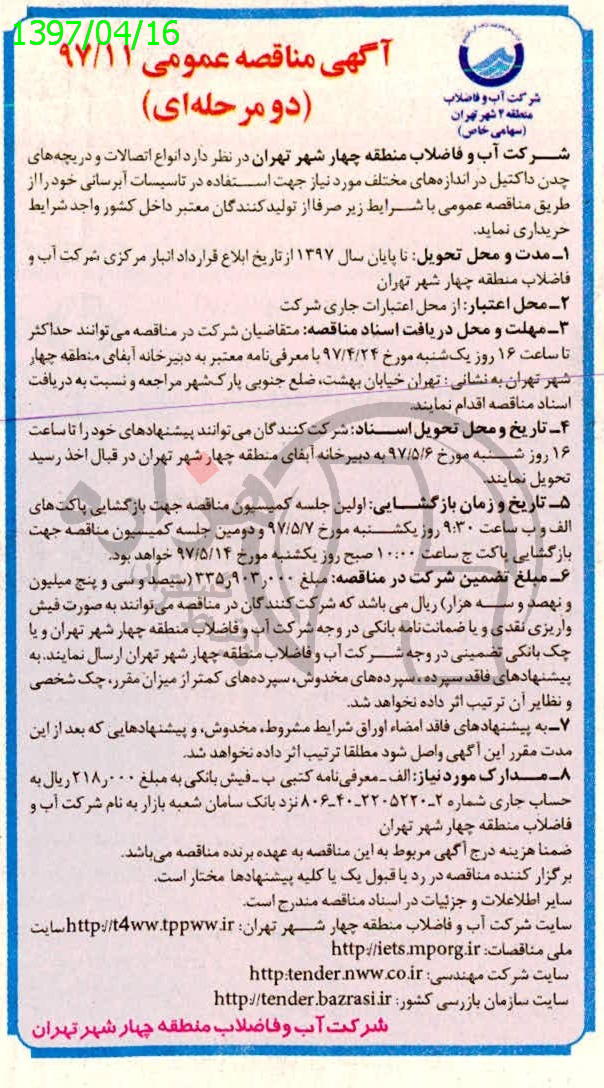 1397/04/16
آگهی مناقصه عمومی ۹۷/۱۱
(دو مرحله‌ای)
شرکت آب و فاضلاب
منطقه ۴ شهر تهران
(سهامی خاص)
شرکت آب و فاضلاب منطقه چهار شهر تهران در نظر دارد انواع اتصالات و دریچه‌های
چدن داکتیل در اندازه‌های مختلف مورد نیاز جهت استفاده در تاسیسات آبرسانی خود را از
طریق مناقصه عمومی با شرایط زیر صرفا از تولیدکنندگان معتبر داخل کشور واجد شرایط
خریداری نماید.
۱ـ مدت و محل تحویل: تا پایان سال ۱۳۹۷ از تاریخ ابلاغ قرارداد انبار مرکزی شرکت آب و
فاضلاب منطقه چهار شهر تهران
۲ـ محل اعتبار: از محل اعتبارات جاری شرکت
۳ـ مهلت و محل دریافت اسناد مناقصه: متقاضیان شرکت در مناقصه می‌توانند حداکثر
تا ساعت ۱۶ روز یک‌شنبه مورخ ۹۷/۴/۲۴ با معرفی‌نامه معتبر به دبیرخانه آبفای منطقه چهار
شهر تهران به نشانی: تهران خیابان بهشت، ضلع جنوبی پارک‌شهر مراجعه و نسبت به دریافت
اسناد مناقصه اقدام نمایند.
۴ـ تاریخ و محل تحویل اسناد: شرکت‌کنندگان می‌توانند پیشنهادهای خود را تا ساعت
۱۶ روز شنبه مورخ ۹۷/۵/۶ به دبیرخانه آبفای منطقه چهار شهر تهران در قبال اخذ رسید
تحویل نمایند.
۵ـ تاریخ و زمان بازگشایی: اولین جلسه کمیسیون مناقصه جهت بازگشایی پاکت‌های
الف و ب ساعت ۹:۳۰ روز یکشنبه مورخ ۹۷/۵/۷ و دومین جلسه کمیسیون مناقصه جهت
بازگشایی پاکت ج ساعت ۱۰:۰۰ صبح روز یکشنبه مورخ ۹۷/۵/۱۴ خواهد بود.
۶ـ مبلغ تضمین شرکت در مناقصه: مبلغ ۳۳۵٫۹۰۳٫۰۰۰ (سیصد و سی و پنج میلیون
و نهصد و سه هزار) ریال می باشد که شرکت‌کنندگان در مناقصه می‌توانند به صورت فیش
واریزی نقدی و یا ضمانت‌نامه بانکی در وجه شرکت آب و فاضلاب منطقه چهار شهر تهران و یا
چک بانکی تضمینی در وجه شرکت آب و فاضلاب منطقه چهار شهر تهران ارسال نمایند. به
پیشنهادهای فاقد سپرده، سپرده‌های مخدوش، سپرده‌های کمتر از میزان مقرر، چک شخصی
و نظایر آن ترتیب اثر داده نخواهد شد.
۷ـ به پیشنهادهای فاقد امضاء اوراق شرایط مشروط، مخدوش، و پیشنهادهایی که بعد از این
مدت مقرر این آگهی واصل شود مطلقا ترتیب اثر داده نخواهد شد.
۸ـ مدارک مورد نیاز: الف ـ معرفی‌نامه کتبی ب ـ فیش بانکی به مبلغ ۲۱۸٫۰۰۰ ریال به
حساب جاری شماره ۲ـ۲۲۰۵۲۲۰ـ۴۰ـ۸۰۶ نزد بانک سامان شعبه بازار به نام شرکت آب و
فاضلاب منطقه چهار شهر تهران
ضمنا هزینه درج آگهی مربوط به این مناقصه به عهده برنده مناقصه می‌باشد.
برگزار کننده مناقصه در رد یا قبول یک یا کلیه پیشنهادها مختار است.
سایر اطلاعات و جزئیات در اسناد مناقصه مندرج است.
سایت شرکت آب و فاضلاب منطقه چهار شهر تهران: http://t4ww.tppww.ir سایت
ملی مناقصات: http://iets.mporg.ir
سایت شرکت مهندسی: http:tender.nww.co.ir
سایت سازمان بازرسی کشور: http://tender.bazrasi.ir
شرکت آب و فاضلاب منطقه چهار شهر تهران